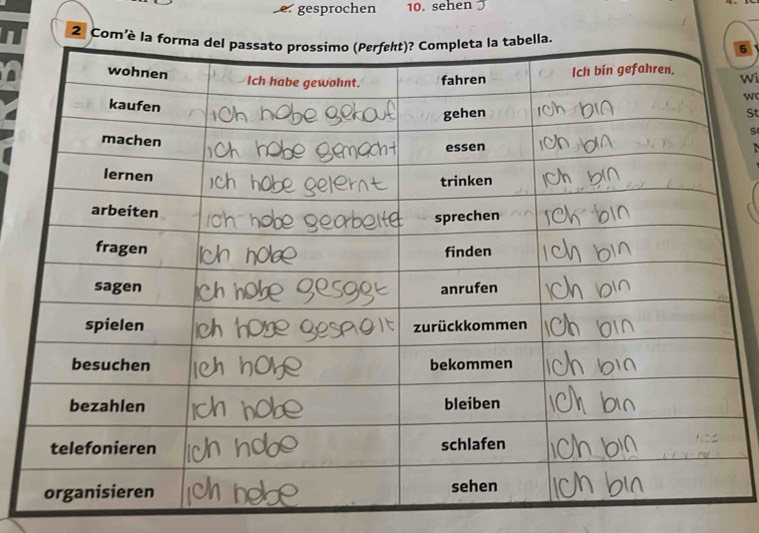 e. gesprochen 10. sehen
2 Com'è la forma del passato prossimo (Perfekt)? Completa la tabella.
5
wohnen Ich habe gewohnt. fahren Ich bin gefahren.
kaufen ich habe gekauf gehen ich bin
machen ich habe gemacht essen ich bin
lernen ich habe gelernt trinken ich bin
arbeiten ich habe gearbeitet sprechen ich bin
fragen ich habe finden ich bin
sagen ich habe gesagt anrufen ich bin
spielen ich habe gespielt zurückkommen ich bin
besuchen ich habe bekommen ich bin
bezahlen ich habe bleiben ich bin
telefonieren ich habe schlafen ich bin
organisieren ich habe sehen ich bin